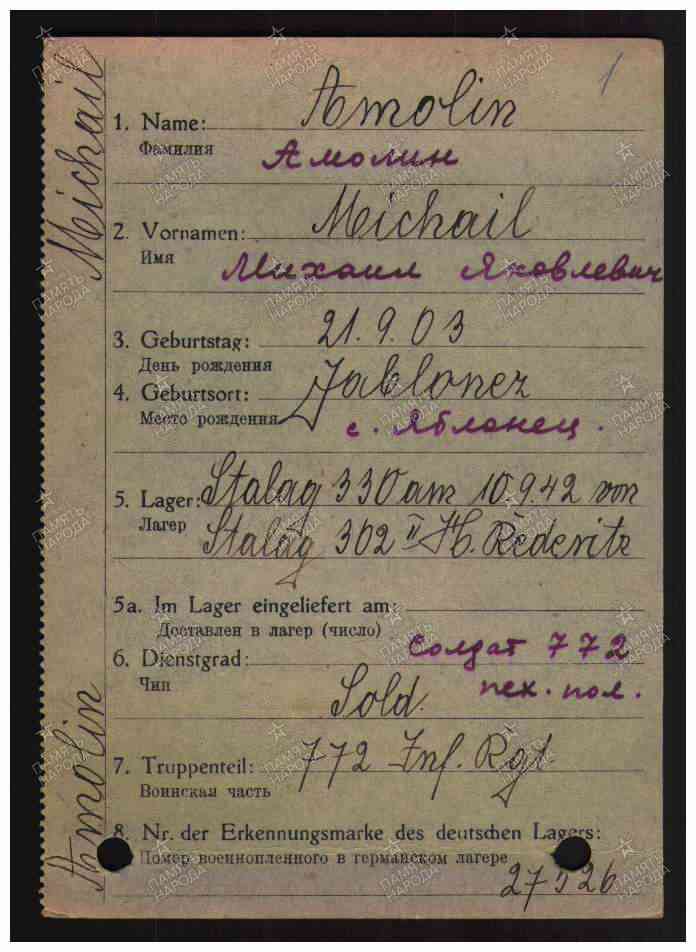 1
1. Name: Amolin
Фамилия Амолин
2. Vornamen: Michail
Имя Михаил Яковлевич
3. Geburtstag: 21.9.03
День рождения
4. Geburtsort: Jablonez
Место рождения с. Яблонец.
5. Lager: Stalag 330 am 10.9.42 von
Лагер Stalag 302 II H. Rederitz
5a. Im Lager eingeliefert am:
Доставлен в лагер (число)
6. Dienstgrad: Солдат 772
Чин пех. пол.
Sold.
7. Truppenteil: 772 Inf. Rgt.
Воинская часть
8. Nr. der Erkennungsmarke des deutschen Lagers:
Номер военнопленного в германском лагере
27526
Amolin Michail
ПАМЯТЬ НАРОДА